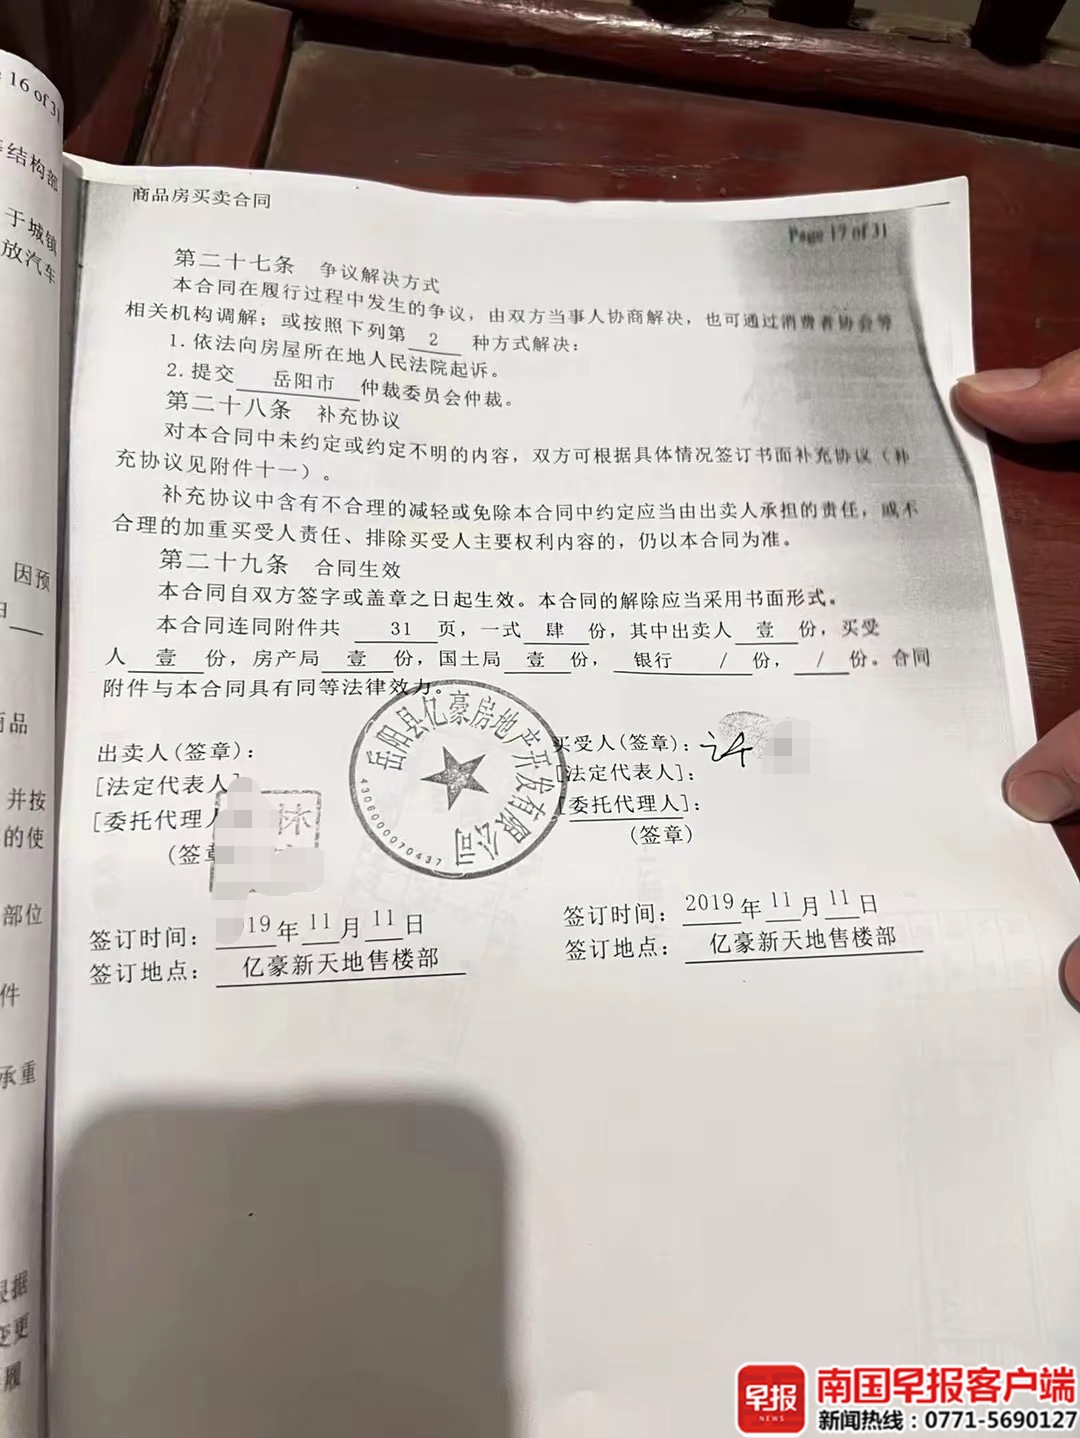 16 of 31
结构部
于城镇
放汽车
因预
商品
并按
的使
部位
件
承重
根据
变更
履
商品房买卖合同
Page 17 of 31
第二十七条 争议解决方式
本合同在履行过程中发生的争议，由双方当事人协商解决，也可通过消费者协会等
相关机构调解；或按照下列第 2 种方式解决：
1.依法向房屋所在地人民法院起诉。
2.提交 岳阳市 仲裁委员会仲裁。
第二十八条 补充协议
对本合同中未约定或约定不明的内容，双方可根据具体情况签订书面补充协议（补
充协议见附件十一）。
补充协议中含有不合理的减轻或免除本合同中约定应当由出卖人承担的责任，或不
合理的加重买受人责任、排除买受人主要权利内容的，仍以本合同为准。
第二十九条 合同生效
本合同自双方签字或盖章之日起生效。本合同的解除应当采用书面形式。
本合同连同附件共 31 页，一式 肆 份，其中出卖人 壹 份，买受
人 壹 份，房产局 壹 份，国土局 壹 份， 银行 / 份， / 份。合同
附件与本合同具有同等法律效力。
出卖人(签章)：
[法定代表人]
[委托代理人
(签章
林
岳阳县亿豪房地产开发有限公司
4306000070437
签订时间： 19年 11月 11日
签订地点： 亿豪新天地售楼部
买受人(签章)： 许
[法定代表人]：
[委托代理人]：
(签章)
签订时间： 2019年 11月 11日
签订地点： 亿豪新天地售楼部
早报
NEWS
南国早报客户端
新闻热线：0771-5690127